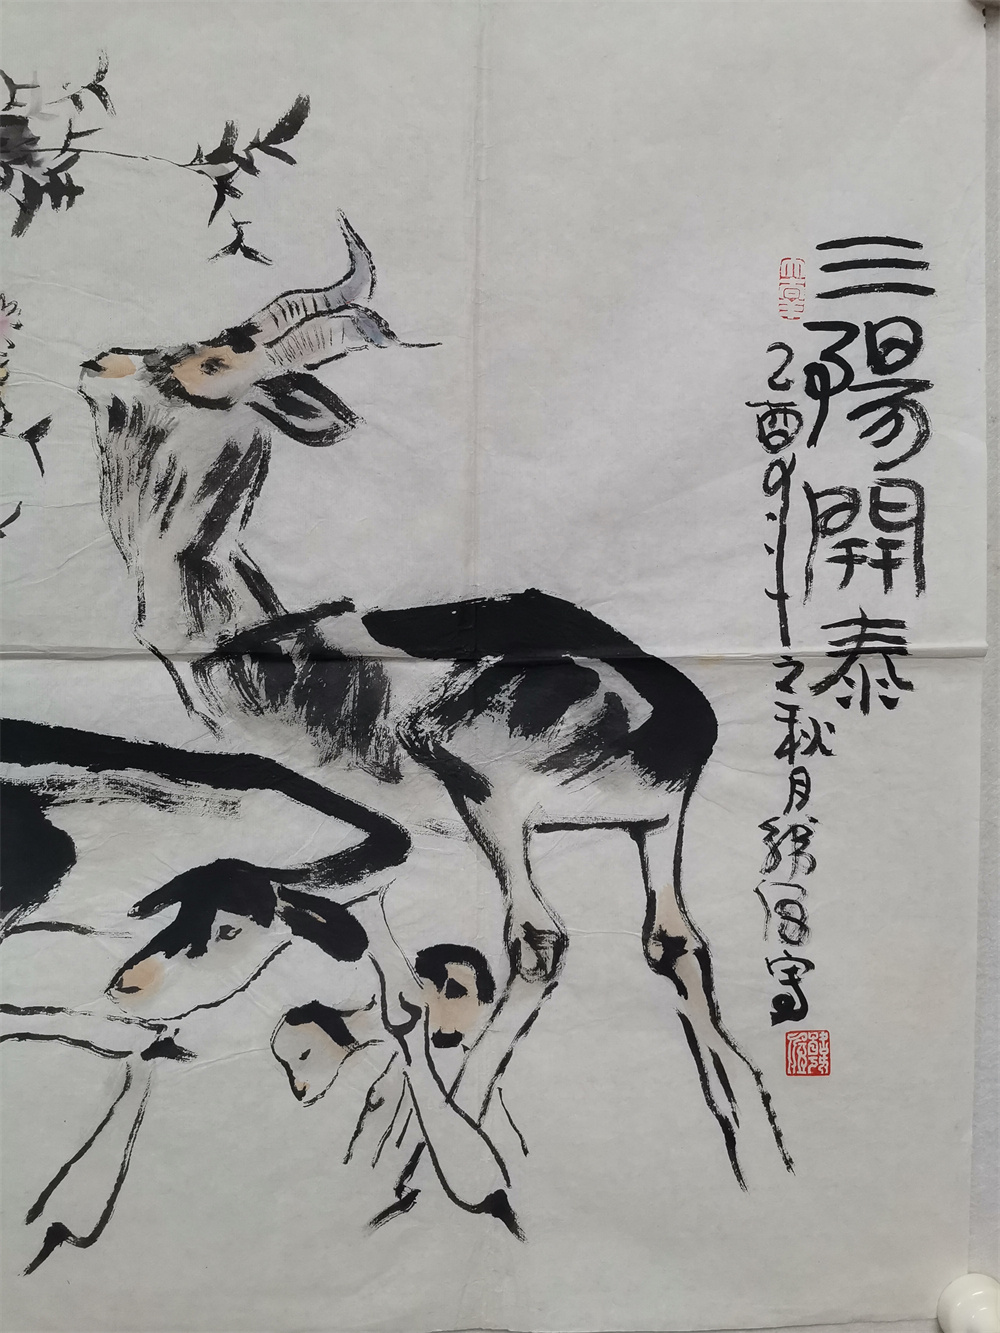 三陽開泰
乙酉年之秋月繼伢寫